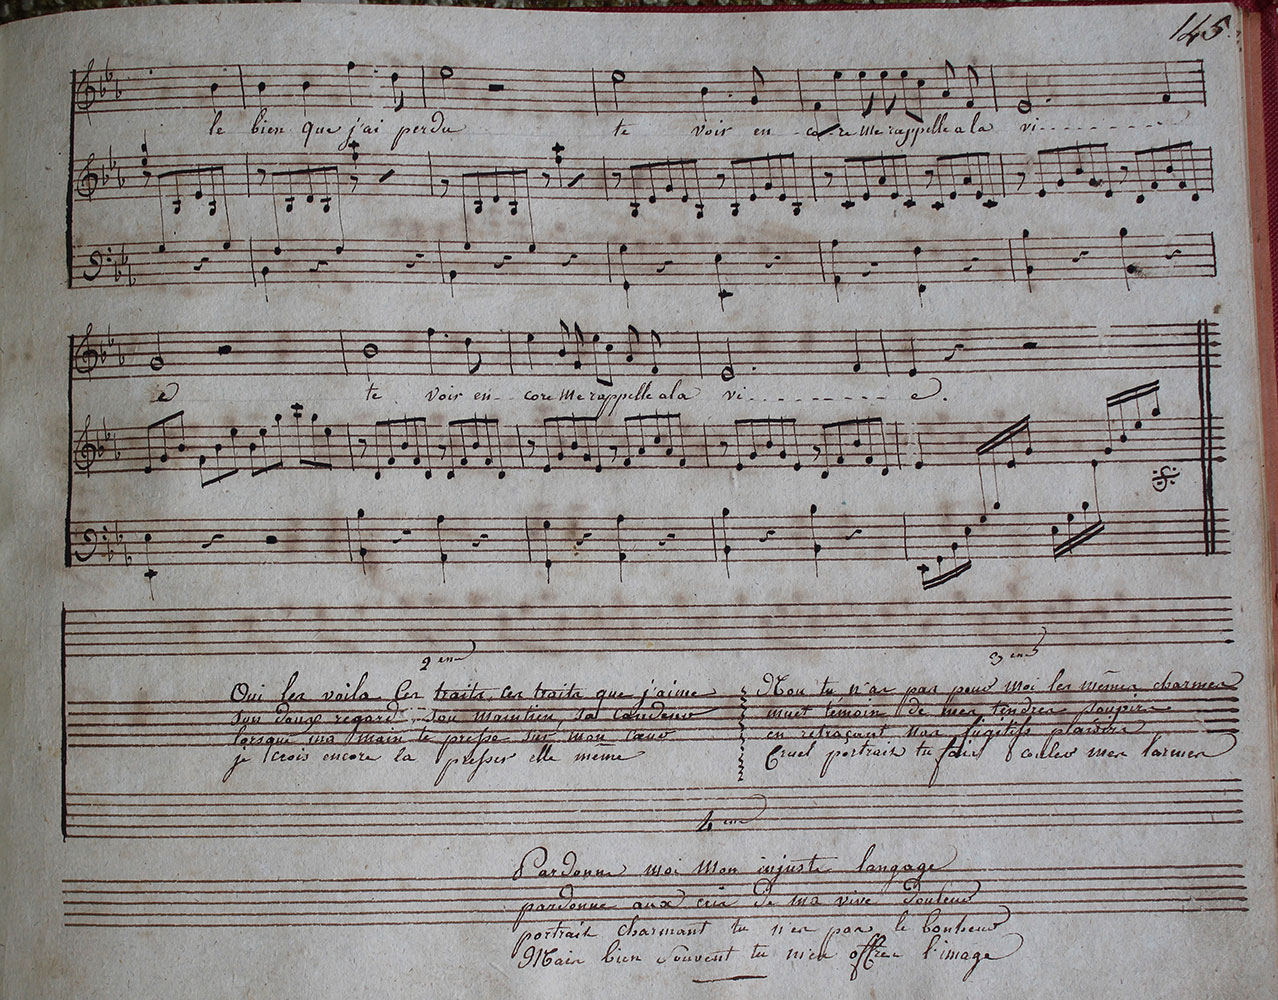 145.
le bien que j'ai perdu te voir en - core me rappelle a la vi - - - - - - - - -
e te voir en - - core me rappelle a la vi - - - - - - - - - e.
2 em
Oui les voila ces traits, ces traits que j'aime
Son doux regard, son maintien, sa candeur
lorsque ma main te presse sur mon cœur
je crois encore la presser elle même
3 em
Non tu n'as pas pour moi les mêmes charmes
muet temoin de mes tendres soupirs
en retraçant nos fugitifs plaisirs
Cruel portrait tu fais couler mes larmes
4 em
Pardonne moi Mon injuste langage
pardonne aux cris de ma vive douleur
portrait charmant tu n'es pas le bonheur
Mais bien souvent tu m'en offres l'image